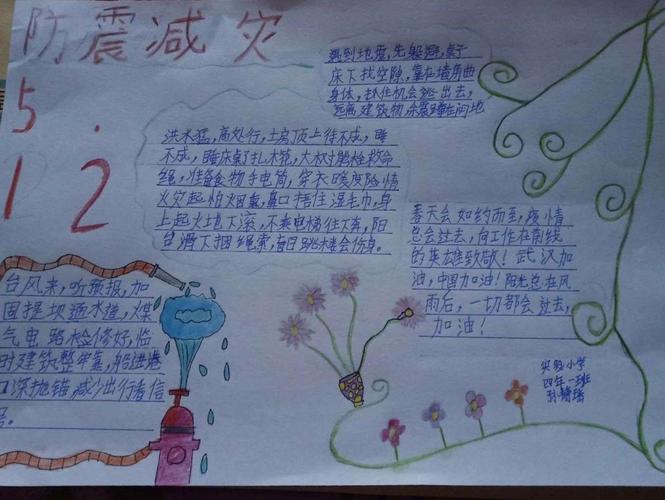 防震减灾
5.
12
遇到地震,先躲避,桌子
床下找空隙,靠在墙角曲
身体,抓住机会逃出去,
远离建筑物,余震蹲在闪地
洪水猛,高处行,土房顶上待不成,睡
不成,睡床桌子扎木筏,大树能拴救命
绳,准备食物手电筒,穿衣暖度险情
火灾起怕火回戴,鼻口捂住湿毛巾,身
上起火地下滚,不乘电梯往下奔,阳
台滑下捆绳索,盲目跳楼会伤身。
春天会如约而至,疫情
总会过去,向工作在前线
的英雄致敬!武汉加
油,中国加油!阳光总在风
雨后,一切都会过去,
加油!
台风来,听预报,加
固堤坝通水道,煤
气电路检修好,临
时建筑整牢靠,船进港
口深抛锚,减少出行看信
实验小学
四年一班